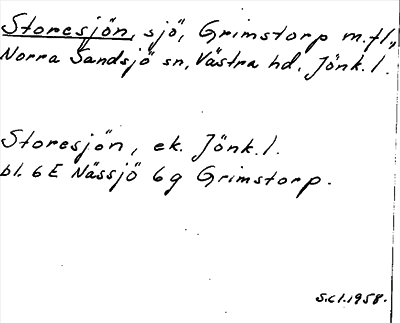 Storesjön, sjö, Grimstorp m.fl.,
Norra Sandsjö sn, Västra hd. Jönk.l.
Storesjön, ek. Jönk.l.
bl. 6E Nässjö 6g Grimstorp.
S.Cl.1958.